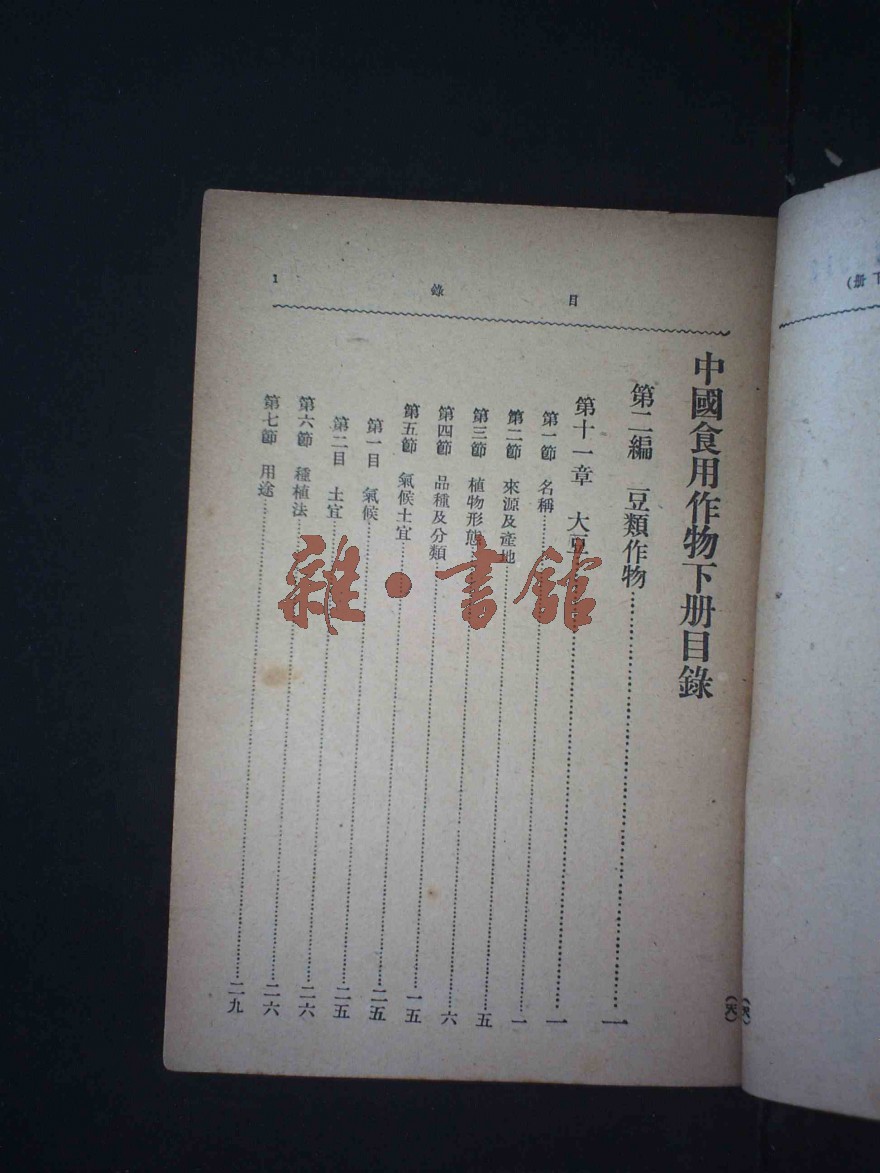 目錄 1
中國食用作物下册目錄
第二編 豆類作物……一
第十一章 大豆……一
第一節 名稱……一
第二節 來源及產地……五
第三節 植物形態……六
第四節 品種及分類……一五
第五節 氣候土宜……二五
第一目 氣候……二五
第二目 土宜……二六
第六節 種植法……二六
第七節 用途……二九
下册)
雜·書館